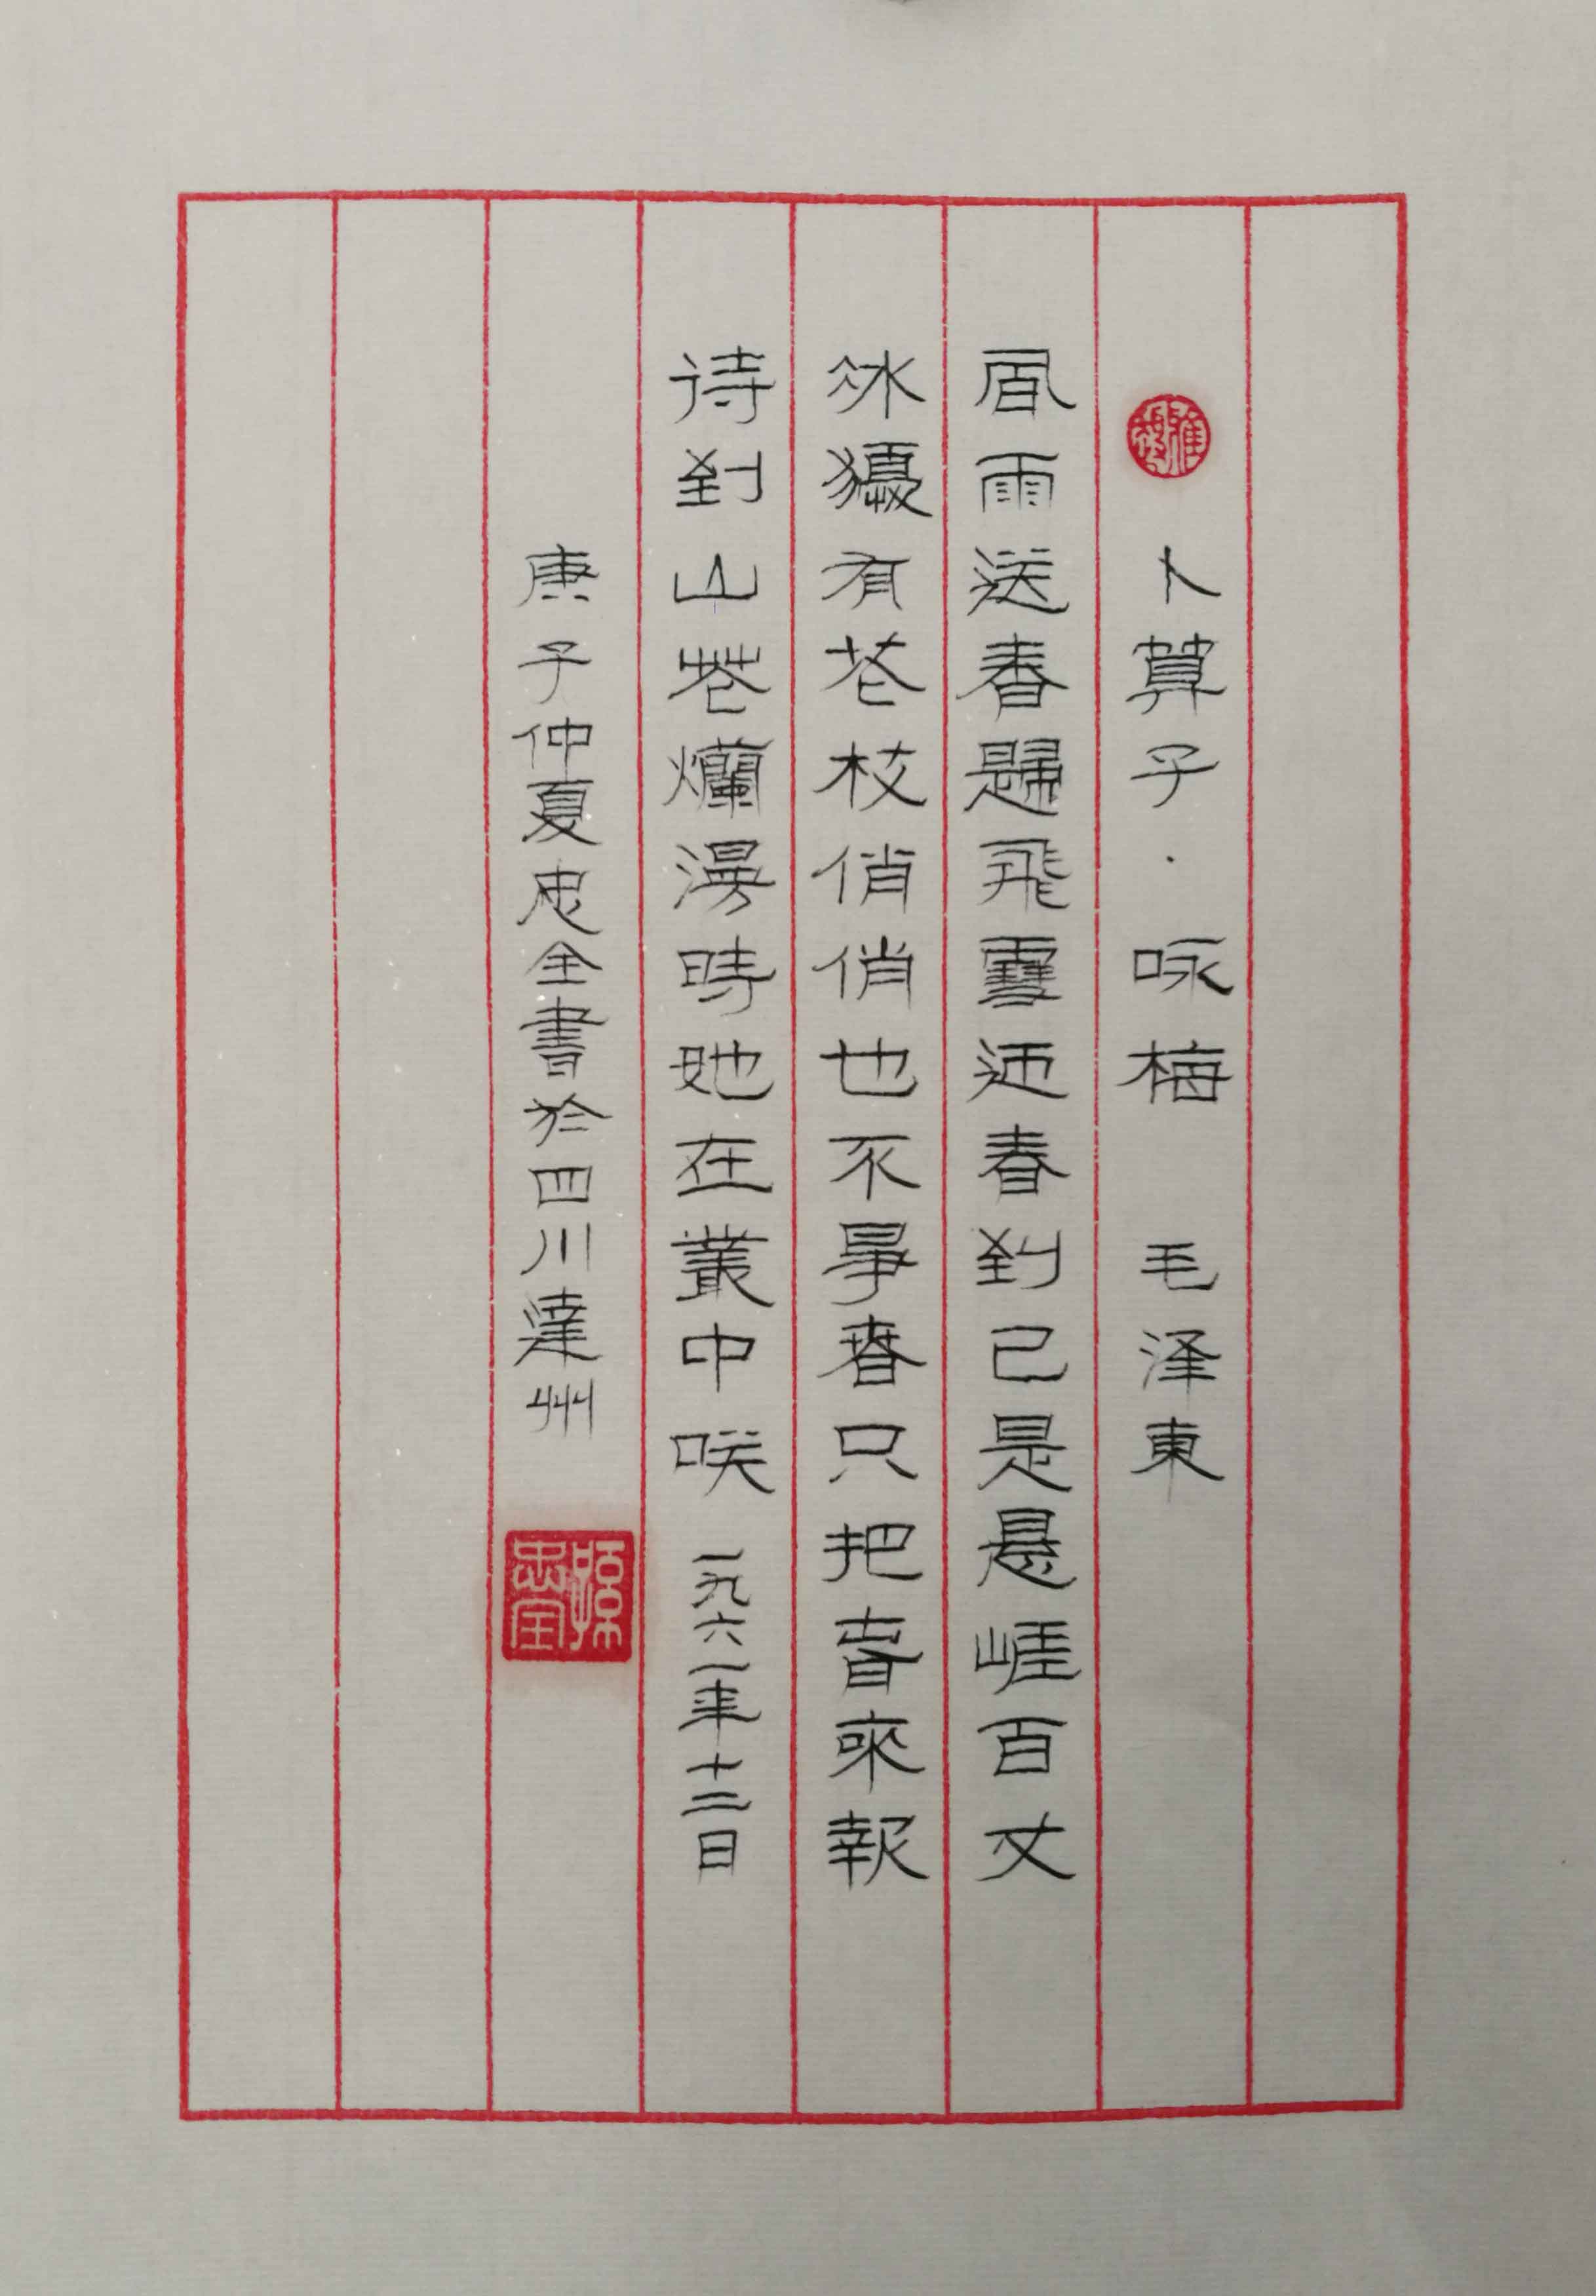 卜算子·咏梅 毛泽東
風雨送春歸飛雪迎春到已是懸崖百丈
冰猶有花枝俏俏也不爭春只把春來報
待到山花爛漫時她在叢中咲 一九六一年十二日
庚子仲夏忠全書於四川達州
孫忠全